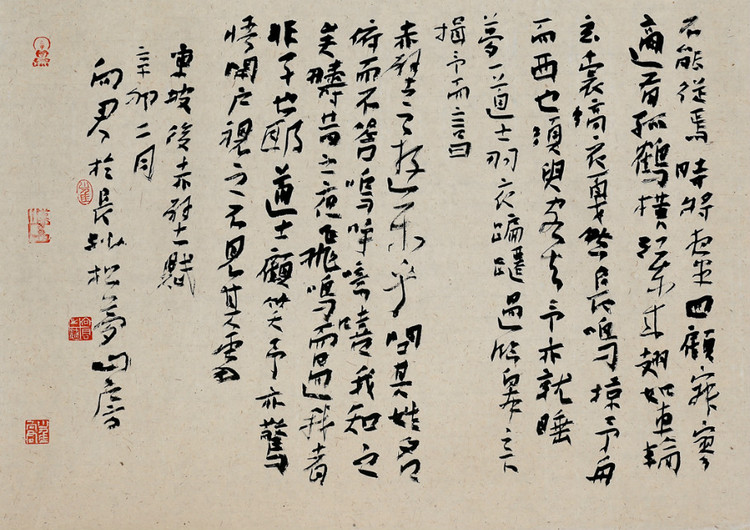 不能從焉時將夜半四顧寂寥
適有孤鶴橫江東來翅如車輪
玄裳縞衣戛然長鳴掠予舟
而西也須臾客去予亦就睡
夢一道士羽衣蹁躚過臨皋之下
揖予而言曰
赤壁之遊樂乎問其姓名
俯而不答嗚呼噫嘻我知之
矣疇昔之夜飛鳴而過我者
非子也耶道士顧笑予亦驚
悟開戶視之不見其處
東坡後赤壁賦
辛卯二月
向君於長松夢山房